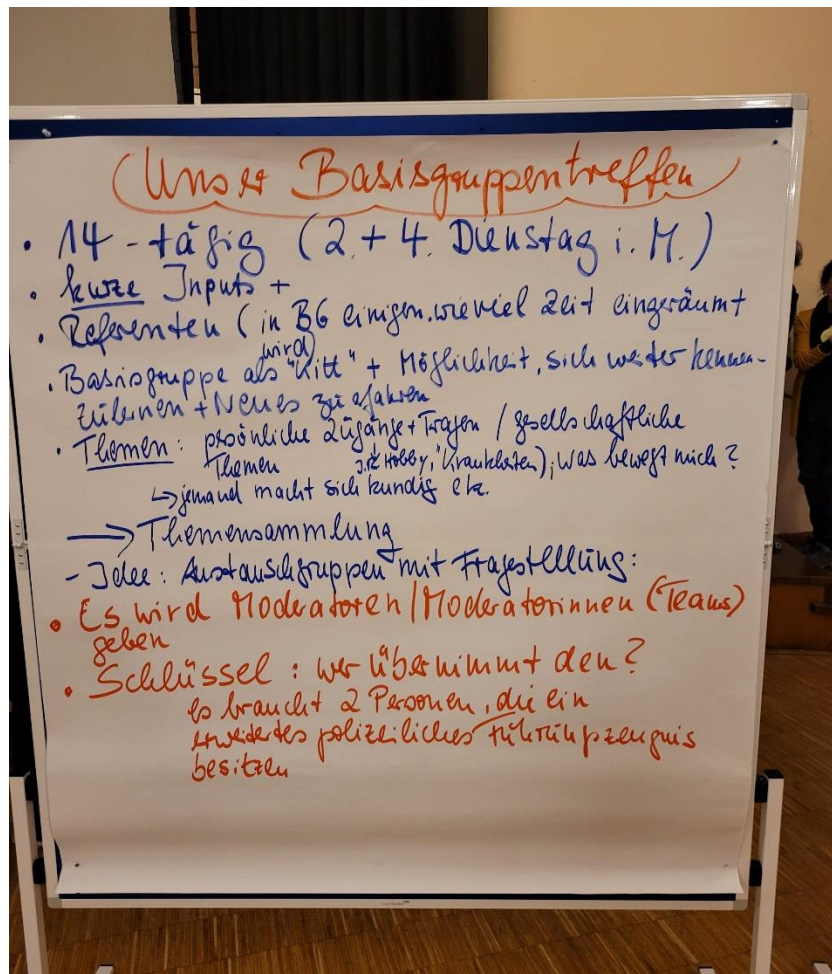 Unser Basisgruppentreffen
• 14-tägig (2. + 4. Dienstag i. M.)
• kurze Inputs +
• Referenten (in BG einigen, wieviel Zeit eingeräumt
wird)
• Basisgruppe als "Kitt" + Möglichkeit, sich weiter kennen-
zulernen + Neues zu erfahren
• Themen: persönliche Zugänge + Fragen / gesellschaftliche
Themen Hobby, Krankheiten), was bewegt mich?
↳ jemand macht sich kundig etc.
→ Themensammlung
- Idee: Austauschgruppen mit Fragestellung:
• Es wird Moderatoren/Moderatorinnen (Teams)
geben
• Schlüssel: wer übernimmt den?
es braucht 2 Personen, die ein
erweitertes polizeiliches Führungszeugnis
besitzen